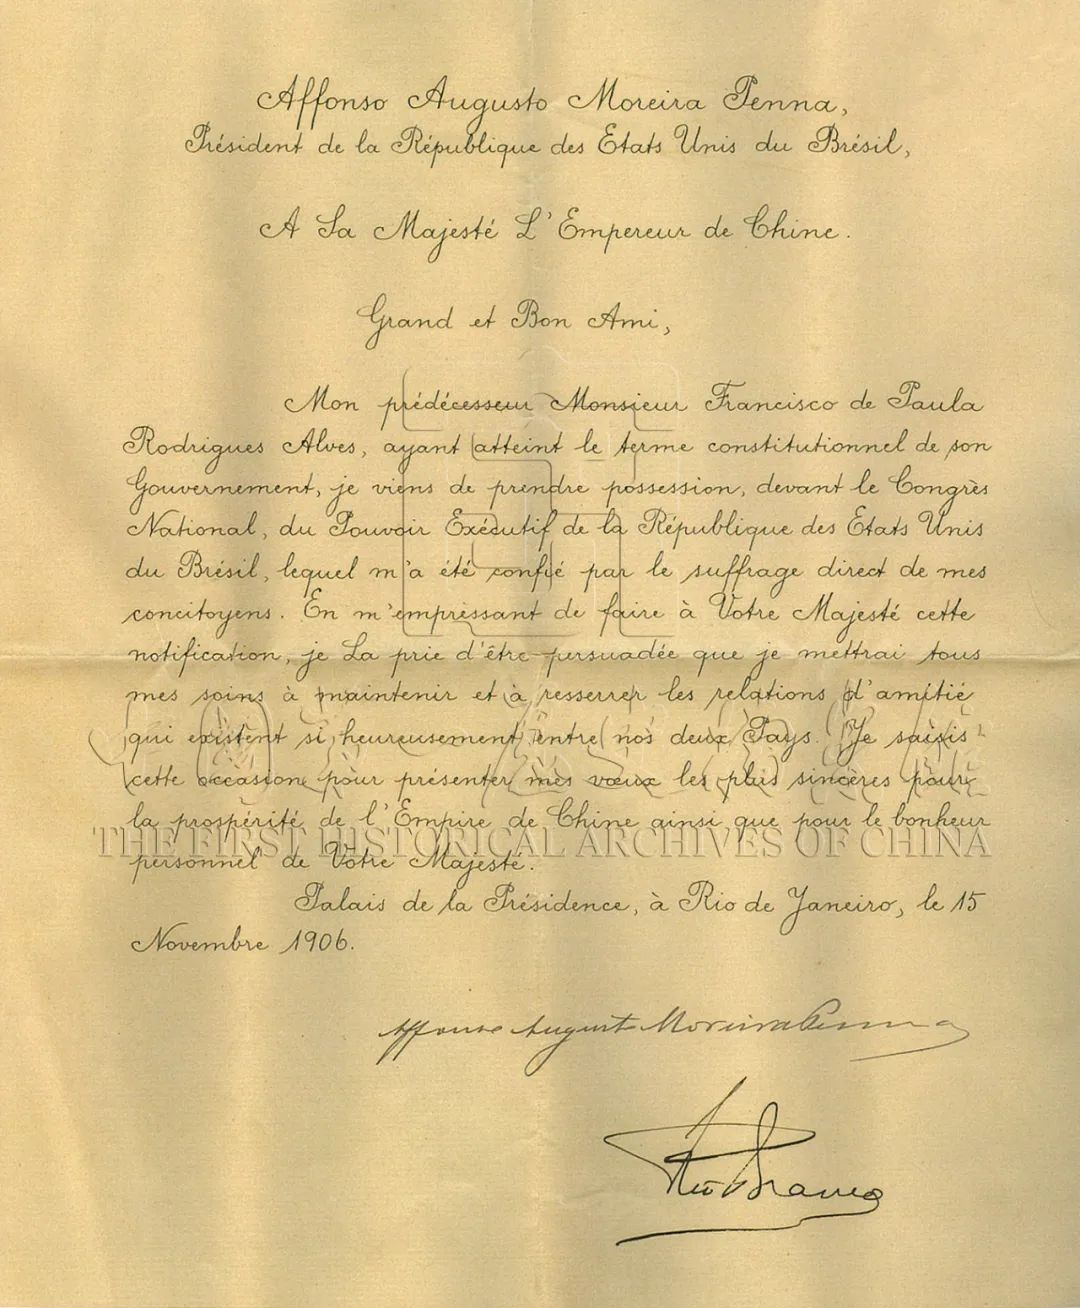 Affonso Augusto Moreira Penna,
Président de la République des Etats Unis du Brésil,
A Sa Majesté L'Empereur de Chine.
Grand et Bon Ami,
Mon prédécesseur Monsieur Francisco de Paula
Rodrigues Alves, ayant atteint le terme constitutionnel de son
Gouvernement, je viens de prendre possession, devant le Congrès
National, du Pouvoir Exécutif de la République des Etats Unis
du Brésil, lequel m'a été confié par le suffrage direct de mes
concitoyens. En m'empressant de faire à Votre Majesté cette
notification, je La prie d'être persuadée que je mettrai tous
mes soins à maintenir et à resserrer les relations d'amitié
qui existent si heureusement entre nos deux Pays. Je saisis
cette occasion pour présenter mes vœux les plus sincères pour
la prospérité de l'Empire de Chine ainsi que pour le bonheur
THE FIRST HISTORICAL ARCHIVES OF CHINA
personnel de Votre Majesté.
Palais de la Présidence, à Rio de Janeiro, le 15
Novembre 1906.
Affonso Augusto Moreira Penna
Rio Branco